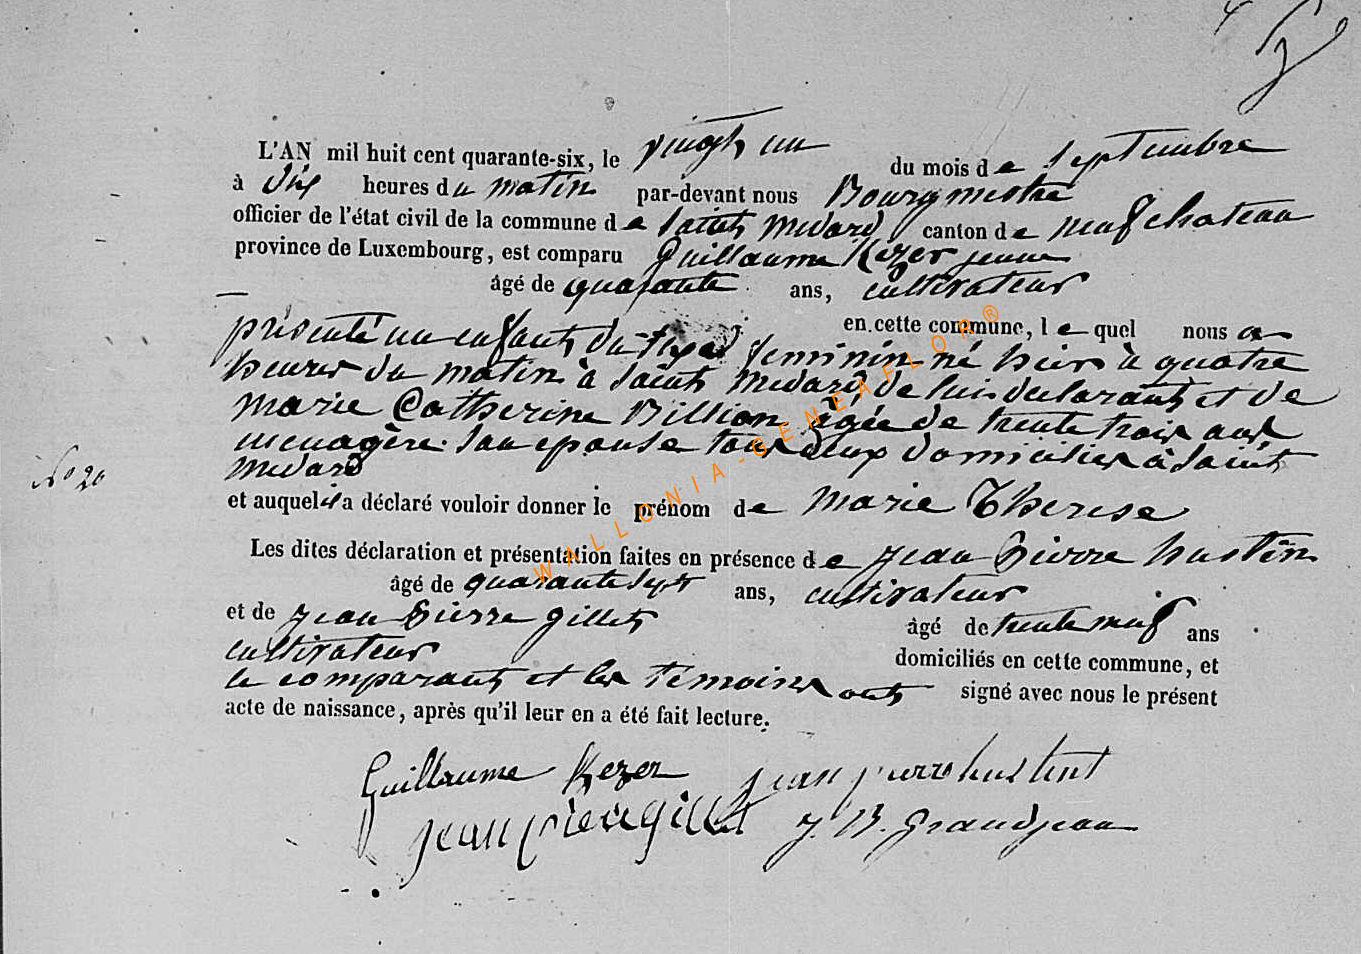 L'AN mil huit cent quarante-six, le vingt un du mois de septembre
à dix heures du matin par-devant nous Bourgmestre
officier de l'état civil de la commune de Saint Medard canton de neufchateau
province de Luxembourg, est comparu Guillaume Kezer jeune
âgé de quarante ans, cultivateur
en cette commune, lequel nous a
présenté un enfant du sexe feminin né hier à quatre
heures du matin à Saint Medard, de lui declarant et de
Marie Catherine Billion agée de trente trois ans
menagère son epouse tous deux domiciliés à Saint
Medard
No 20
et auquel il a déclaré vouloir donner le prénom de Marie Therese
Les dites déclaration et présentation faites en présence de Jean Pierre hustin
âgé de quarante sept ans, cultivateur
et de Jean Pierre gillet âgé de trente neuf ans
cultivateur domiciliés en cette commune, et
le comparant et les temoins ont signé avec nous le présent
acte de naissance, après qu'il leur en a été fait lecture.
Guillaume Kezer jean pierre hustint
jean pierre gillet J. B. Grandjean
WALLONIA-GENEAFLOR®